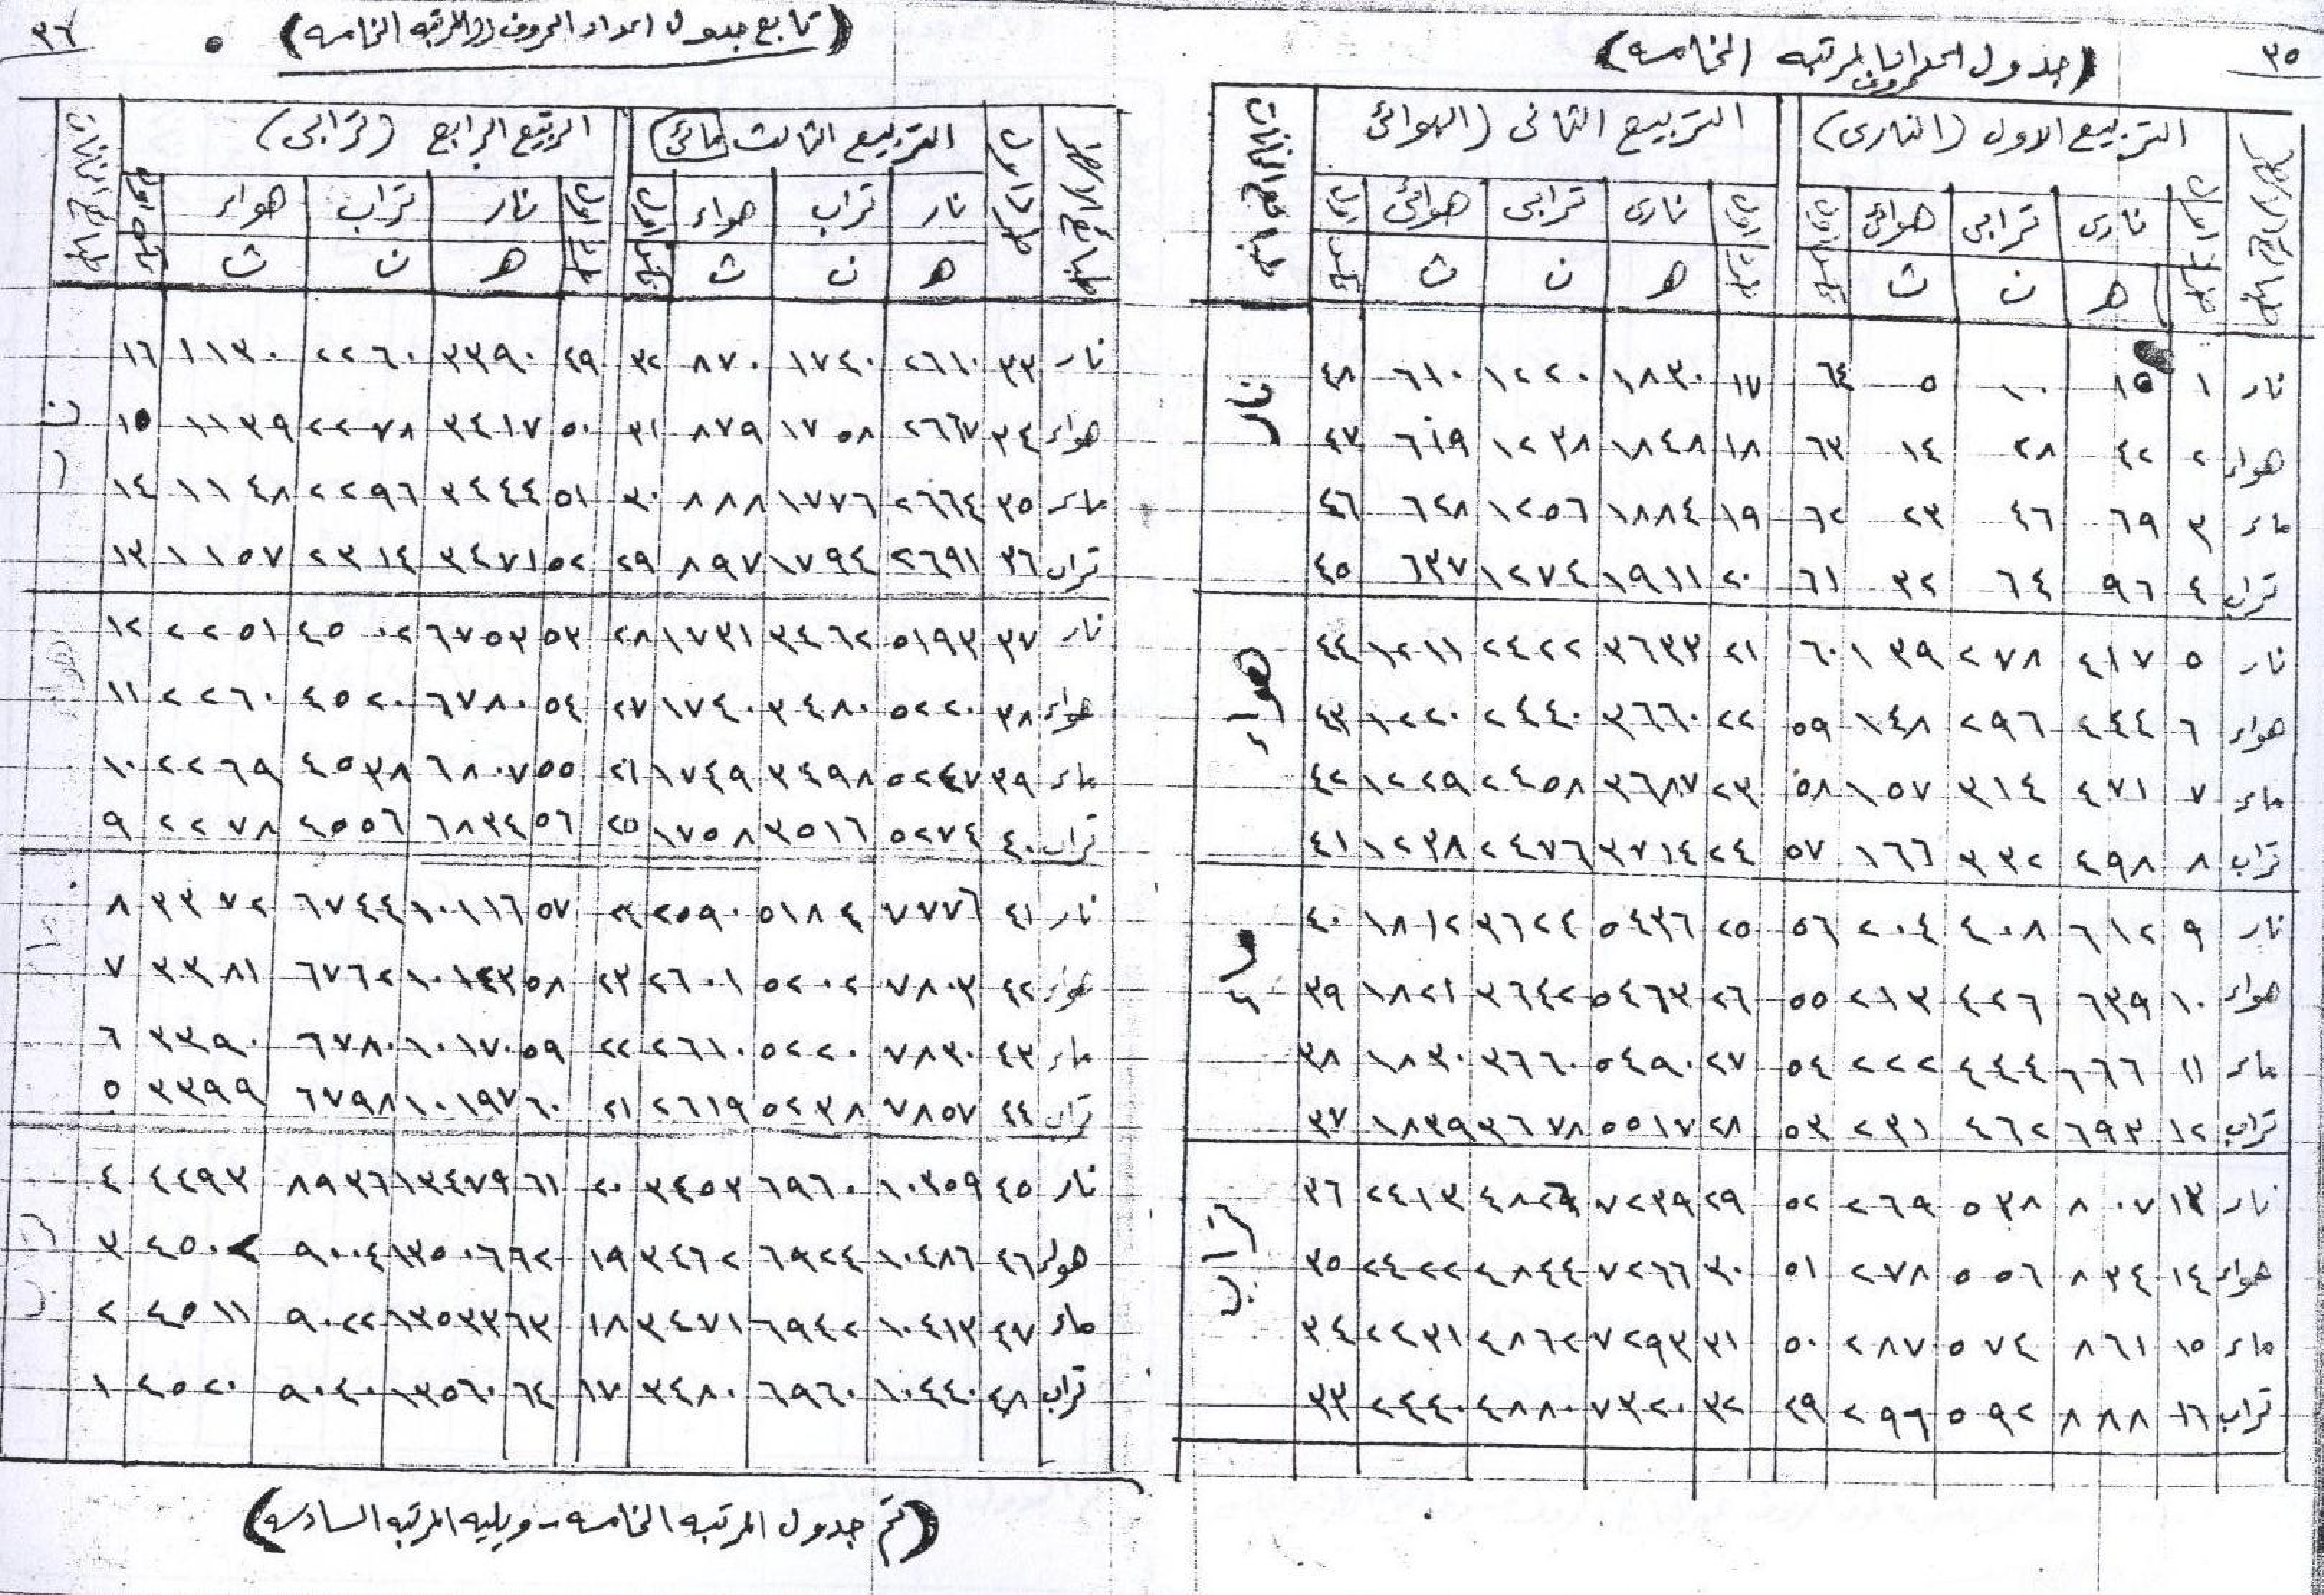 ٣٥
(جدول اعداد حروف المرتبه الخامسه)
التربيع الاول (النارى) التربيع الثانى (الهوائى)
نارى ترابى هوائى نارى ترابى هوائى
ه ن ث ه ن ث
نار ١ ١٥ ١٠ ٥ ٦٤ ١٧ ١٨٣٠ ١٢٢٠ ٦١٠ ٤٨ نار
هواء ٢ ٤٢ ٢٨ ١٤ ٦٣ ١٨ ١٨٤٨ ١٢٣٨ ٦١٩ ٤٧
ماء ٣ ٦٩ ٤٦ ٢٣ ٦٢ ١٩ ١٨٨٤ ١٢٥٦ ٦٢٨ ٤٦
تراب ٤ ٩٦ ٦٤ ٣٢ ٦١ ٢٠ ١٩١١ ١٢٧٤ ٦٣٧ ٤٥
نار ٥ ٤١٧ ٢٧٨ ١٣٩ ٦٠ ٢١ ٣٦٣٣ ٢٤٢٢ ١٢١١ ٤٤ هواء
هواء ٦ ٤٤٤ ٢٩٦ ١٤٨ ٥٩ ٢٢ ٣٦٦٠ ٢٤٤٠ ١٢٢٠ ٤٣
ماء ٧ ٤٧١ ٣١٤ ١٥٧ ٥٨ ٢٣ ٣٦٨٧ ٢٤٥٨ ١٢٢٩ ٤٢
تراب ٨ ٤٩٨ ٣٣٢ ١٦٦ ٥٧ ٢٤ ٣٧١٤ ٢٤٧٦ ١٢٣٨ ٤١
نار ٩ ٦١٢ ٤٠٨ ٢٠٤ ٥٦ ٢٥ ٥٤٣٦ ٣٦٢٤ ١٨١٢ ٤٠ ماء
هواء ١٠ ٦٣٩ ٤٢٦ ٢١٣ ٥٥ ٢٦ ٥٤٦٣ ٣٦٤٢ ١٨٢١ ٣٩
ماء ١١ ٦٦٦ ٤٤٤ ٢٢٢ ٥٤ ٢٧ ٥٤٩٠ ٣٦٦٠ ١٨٣٠ ٣٨
تراب ١٢ ٦٩٣ ٤٦٢ ٢٣١ ٥٣ ٢٨ ٥٥١٧ ٣٦٧٨ ١٨٣٩ ٣٧
نار ١٣ ٨٠٧ ٥٣٨ ٢٦٩ ٥٢ ٢٩ ٧٢٣٩ ٤٨٢٦ ٢٤١٣ ٣٦ تراب
هواء ١٤ ٨٣٤ ٥٥٦ ٢٧٨ ٥١ ٣٠ ٧٢٦٦ ٤٨٤٤ ٢٤٢٢ ٣٥
ماء ١٥ ٨٦١ ٥٧٤ ٢٨٧ ٥٠ ٣١ ٧٢٩٣ ٤٨٦٢ ٢٤٣١ ٣٤
تراب ١٦ ٨٨٨ ٥٩٢ ٢٩٦ ٤٩ ٣٢ ٧٣٢٠ ٤٨٨٠ ٢٤٤٠ ٣٣
(تابع جدول اعداد الحروف المرتبه الخامسه)
٣٦
التربيع الثالث (مائى) التربيع الرابع (ترابى)
نار تراب هواء نار تراب هواء
ه ن ث ه ن ث
نار ٣٣ ٢٦١٠ ١٧٤٠ ٨٧٠ ٣٢ ٤٩ ٣٣٩٠ ٢٢٦٠ ١١٣٠ ١٦ نار
هواء ٣٤ ٢٦٦٧ ١٧٥٨ ٨٧٩ ٣١ ٥٠ ٣٤١٧ ٢٢٧٨ ١١٣٩ ١٥
ماء ٣٥ ٢٦٦٤ ١٧٧٦ ٨٨٨ ٣٠ ٥١ ٣٤٤٤ ٢٢٩٦ ١١٤٨ ١٤
تراب ٣٦ ٢٦٩١ ١٧٩٤ ٨٩٧ ٢٩ ٥٢ ٣٤٧١ ٢٣١٤ ١١٥٧ ١٣
نار ٣٧ ٥١٩٣ ٣٤٦٢ ١٧٣١ ٢٨ ٥٣ ٦٧٥٣ ٤٥٠٢ ٢٢٥١ ١٢ هواء
هواء ٣٨ ٥٢٢٠ ٣٤٨٠ ١٧٤٠ ٢٧ ٥٤ ٦٧٨٠ ٤٥٢٠ ٢٢٦٠ ١١
ماء ٣٩ ٥٢٤٧ ٣٤٩٨ ١٧٤٩ ٢٦ ٥٥ ٦٨٠٧ ٤٥٣٨ ٢٢٦٩ ١٠
تراب ٤٠ ٥٢٧٤ ٣٥١٦ ١٧٥٨ ٢٥ ٥٦ ٦٨٣٤ ٤٥٥٦ ٢٢٧٨ ٩
نار ٤١ ٧٧٧٦ ٥١٨٤ ٢٥٩٠ ٢٤ ٥٧ ١٠١١٦ ٦٧٤٤ ٣٣٧٢ ٨
هواء ٤٢ ٧٨٠٣ ٥٢٠٢ ٢٦٠١ ٢٣ ٥٨ ١٠١٤٣ ٦٧٦٢ ٣٣٨١ ٧
ماء ٤٣ ٧٨٣٠ ٥٢٢٠ ٢٦١٠ ٢٢ ٥٩ ١٠١٧٠ ٦٧٨٠ ٣٣٩٠ ٦
تراب ٤٤ ٧٨٥٧ ٥٢٣٨ ٢٦١٩ ٢١ ٦٠ ١٠١٩٧ ٦٧٩٨ ٣٣٩٩ ٥
نار ٤٥ ١٠٣٥٩ ٦٩٦٠ ٣٤٥٣ ٢٠ ٦١ ١٣٤٧٩ ٨٩٣٦ ٤٤٩٣ ٤
هواء ٤٦ ١٠٤٨٦ ٦٩٢٤ ٣٤٦٢ ١٩ ٦٢ ١٣٥٠٦ ٩٠٠٤ ٤٥٠٢ ٣
ماء ٤٧ ١٠٤١٣ ٦٩٤٢ ٣٤٧١ ١٨ ٦٣ ١٣٥٣٣ ٩٠٢٢ ٤٥١١ ٢
تراب ٤٨ ١٠٤٤٠ ٦٩٦٠ ٣٤٨٠ ١٧ ٦٤ ١٣٥٦٠ ٩٠٤٠ ٤٥٢٠ ١
(تم جدول المرتبه الخامسه - ويليه المرتبه السادسه)